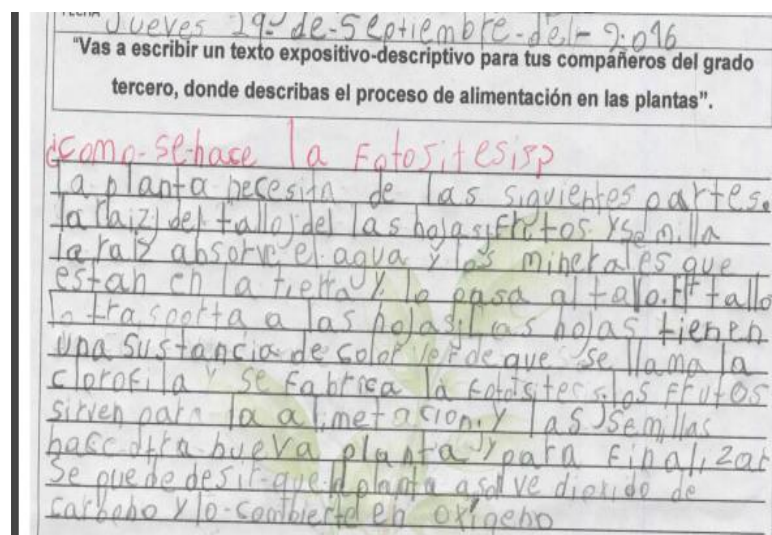 Jueves 29 de-Septiembre-del-2.016
"Vas a escribir un texto expositivo-descriptivo para tus compañeros del grado
tercero, donde describas el proceso de alimentación en las plantas".
¿como-se-hace la Fotositesis?
la planta necesita de las siguientes partes.
la raiz, del tallo, del las hojas, Frutos y semilla
la raiz absorve el agua y los minerales que
estan en la tierra y lo pasa al talo. El tallo
lo trasporta a las hojas. Las hojas tienen
una sustancia de color verde que se llama la
clorofila y se fabrica la fotositecis. los Frutos
sirven para la alimetacion, y las semillas
hace otra nueva planta y para Finalizar
se puede desir-que la planta asolve dioxido de
carbono y lo-combierte en oxigeno